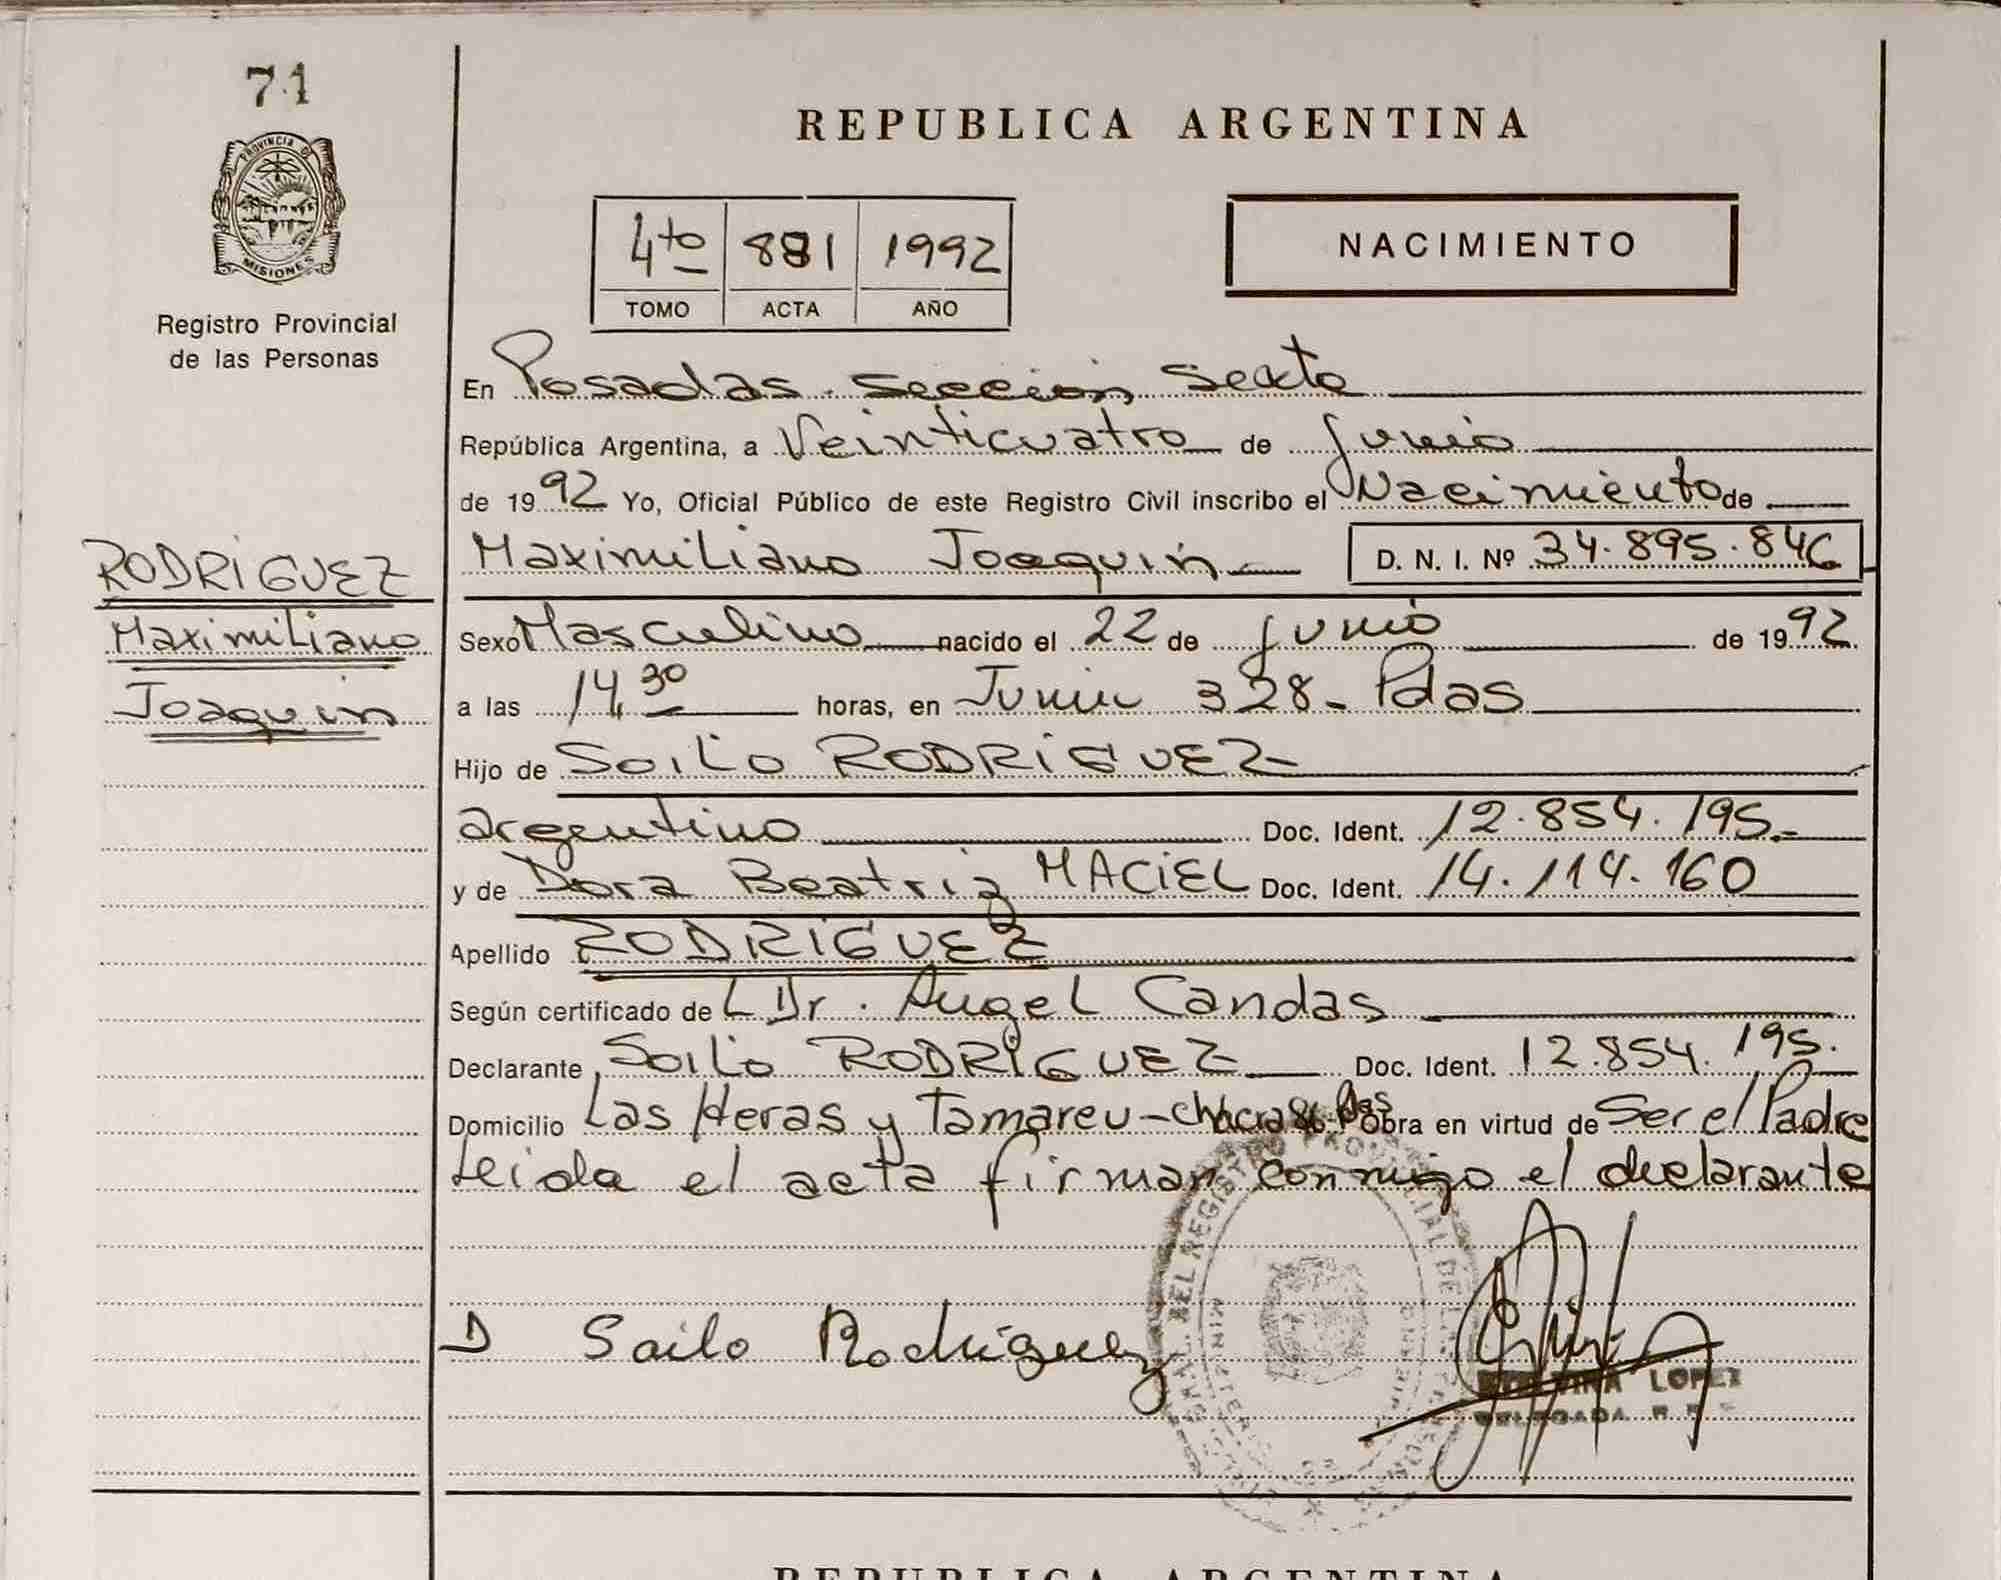 71
PROVINCIA DE
MISIONES
Registro Provincial
de las Personas
REPUBLICA ARGENTINA
4to 881 1992
TOMO ACTA AÑO
NACIMIENTO
En Posadas. seccion sexta
República Argentina, a Veinticuatro de Junio
de 1992 Yo, Oficial Público de este Registro Civil inscribo el Nacimiento de
RODRIGUEZ
Maximiliano
Joaquin
Maximiliano Joaquin D. N. I. Nº 34.895.846
Sexo Masculino nacido el 22 de Junio de 1992
a las 14,30 horas, en Junin 328- Pdas
Hijo de Soilo RODRIGUEZ
argentino Doc. Ident. 12.854.195.-
y de Dora Beatriz MACIEL Doc. Ident. 14.114.160
Apellido RODRIGUEZ
Según certificado de L Dr. Angel Candas
Declarante Soilo RODRIGUEZ Doc. Ident. 12.854.195.
Domicilio Las Heras y Tamareu-chacra 86. Pdas Obra en virtud de Ser el Padre
Leida el acta firman conmigo el declarante
D Soilo Rodriguez
LOPEZ
DELEGADA
REPUBLICA ARGENTINA